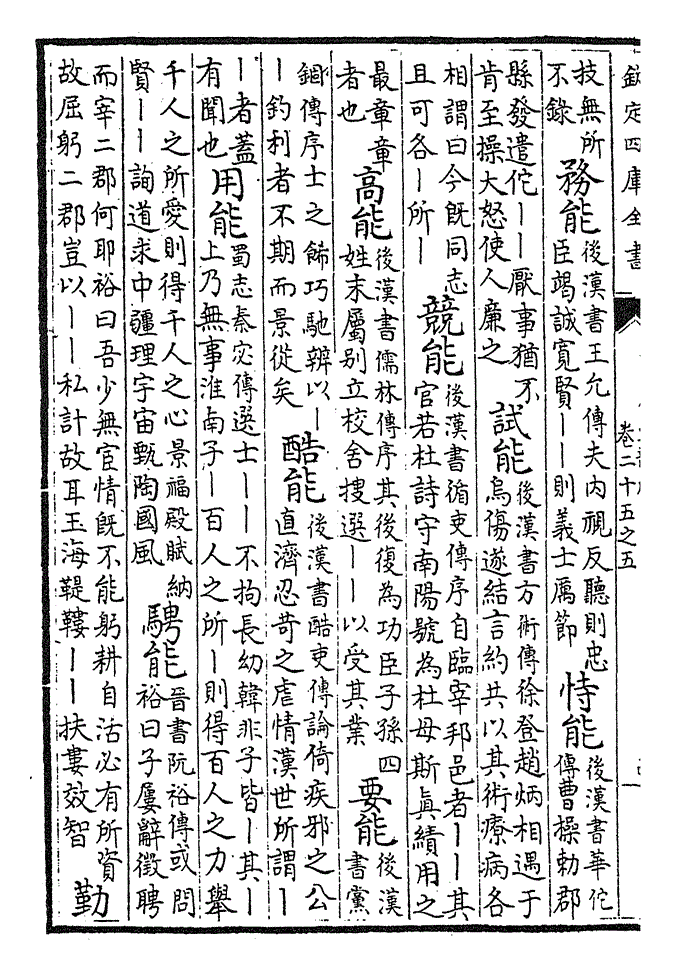 欽定四庫全書
卷二十五之五
技無所
不錄
務能
後漢書王允傳夫内視反聽則忠
臣竭誠寛賢丨丨則義士厲節
恃能
後漢書華佗
傳曹操勅郡
縣發遣佗丨丨厭事猶不
肯至操大怒使人廉之
試能
後漢書方術傳徐登趙炳相遇于
烏傷遂結言約共以其術療病各
相謂曰今既同志
且可各丨所丨
競能
後漢書循吏傳序自臨宰邦邑者丨丨其
官若杜詩守南陽號為杜母斯眞績用之
最章章
者也
高能
後漢書儒林傳序其後復為功臣子孫四
姓末屬别立校舍搜選丨丨以受其業
要能
後漢
書黨
錮傳序士之飾巧馳辨以丨
丨釣利者不期而景從矣
酷能
後漢書酷吏傳論倚疾邪之公
直濟忍苛之虐情漢世所謂丨
丨者蓋
有聞也
用能
蜀志秦宓傳選士丨丨不拘長幼韓非子皆丨其丨
上乃無事淮南子丨百人之所丨則得百人之力舉
千人之所愛則得千人之心景福殿賦納
賢丨丨詢道求中疆理宇宙甄陶國風
騁能
晉書阮裕傳或問
裕曰子屢辭徵聘
而宰二郡何耶裕曰吾少無宦情既不能躬耕自活必有所資
故屈躬二郡豈以丨丨私計故耳玉海鞮鞻丨丨扶婁效智
勤